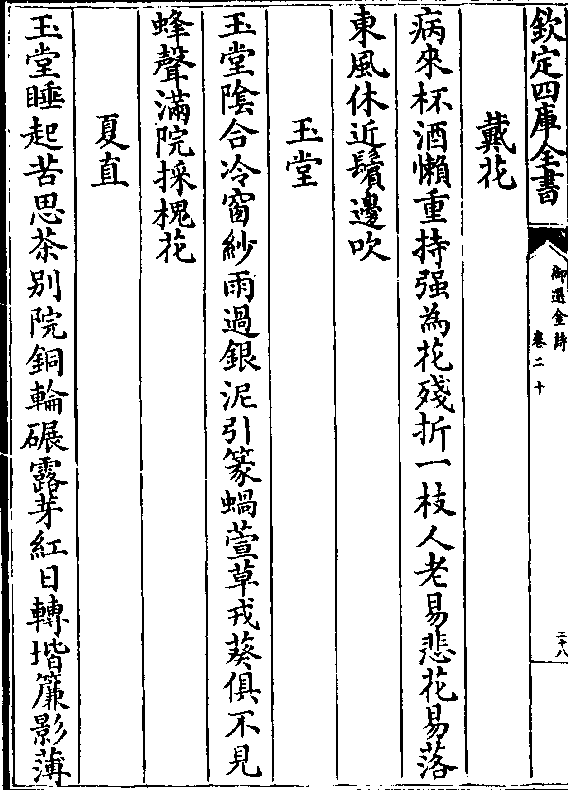 欽定四庫全書
御選金詩
卷二十
二十八
戴花
病來杯酒懶重持强為花殘折一枝人老易悲花易落
東風休近鬢邊吹
玉堂
玉堂陰合冷窗紗雨過銀泥引篆蝸萱草戎葵俱不見
蜂聲滿院採槐花
夏直
玉堂睡起苦思茶别院銅輪碾露芽紅日轉堦簾影薄